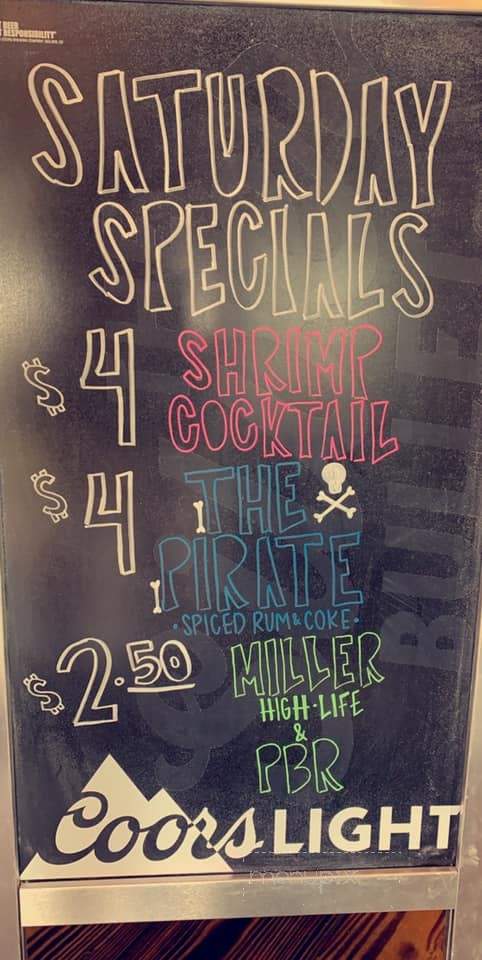 BEER
RESPONSIBILITY
SATURDAY
SPECIALS
$4 SHRIMP
COCKTAIL
$4 THE
PIRATE
•SPICED RUM & COKE•
$2.50 MILLER
HIGH-LIFE
&
PBR
Coors LIGHT